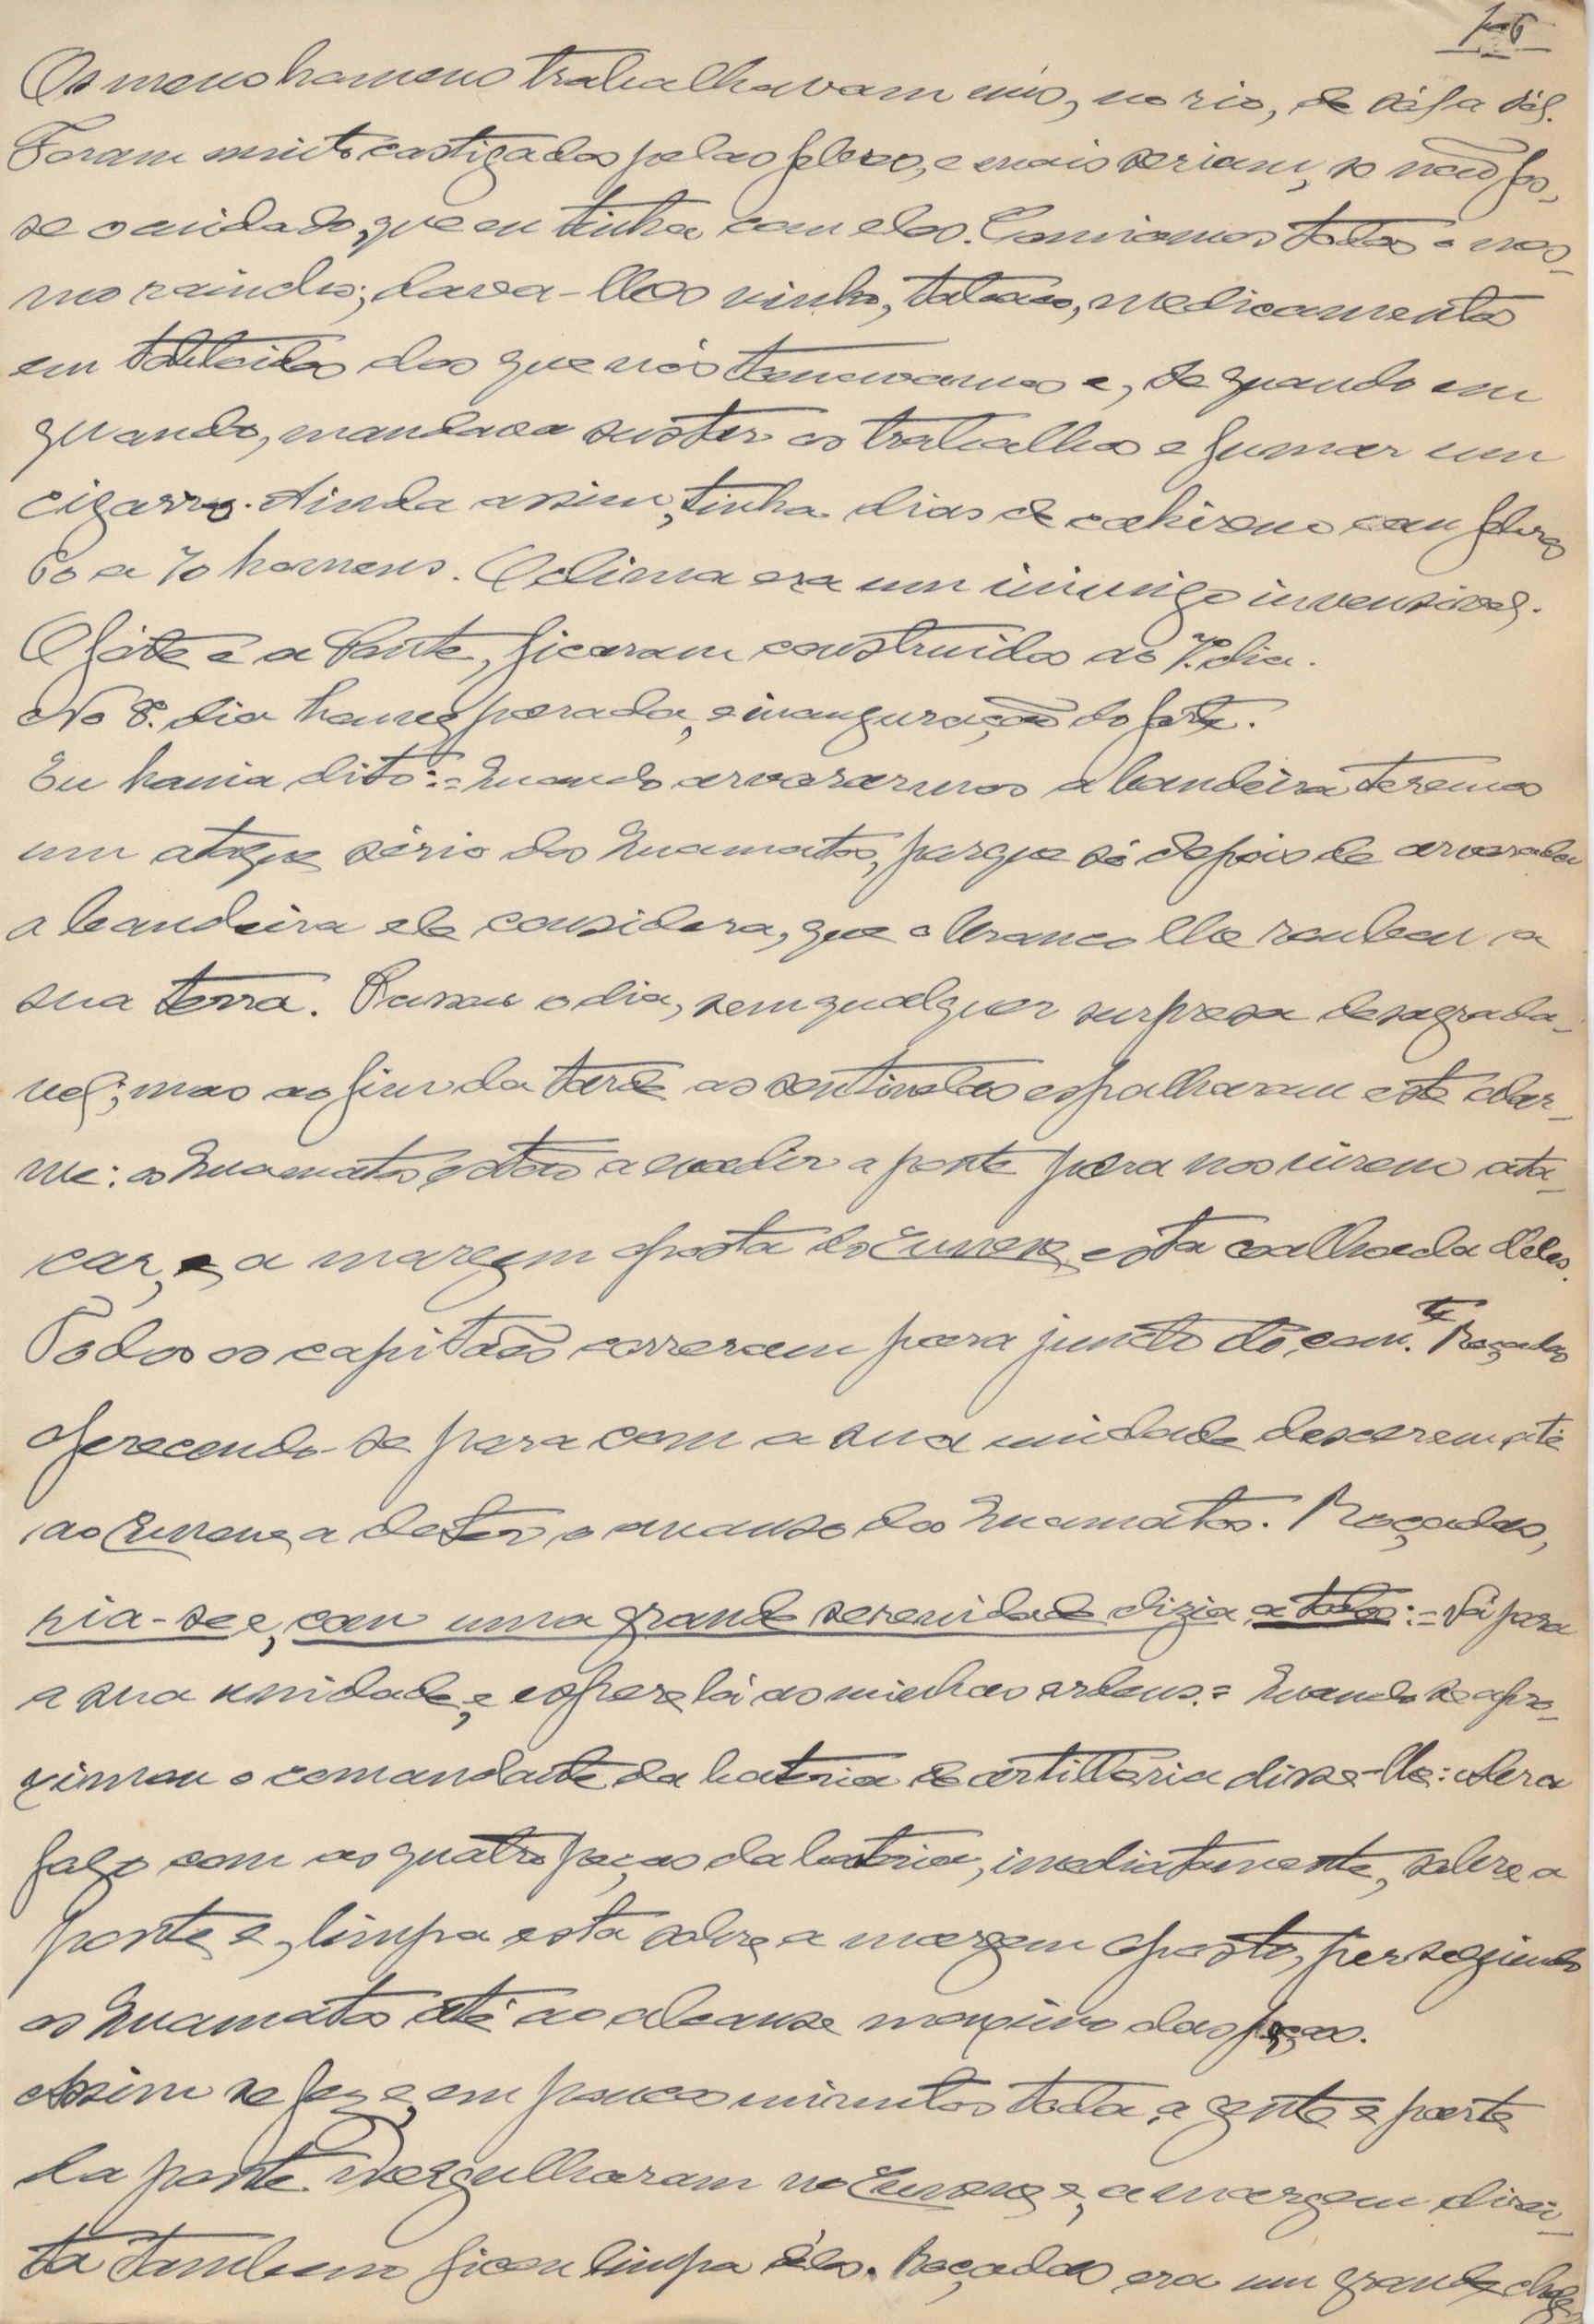 Os meus homens trabalhavam nús, no rio, de sól a sól.
Foram muito castigados pelas febres, e mais seriam, se não fos-
se o cuidado, que eu tinha com eles. Comiamos todos o mes-
mo rancho; dava-lhes vinho, tabaco, medicamentos
em tabloides dos que nós tomavamos e, de quando em
quando, mandava suster os trabalhos e fumar um
cigarro. Ainda assim, tinha dias de cahirem com febres
60 a 70 homens. O clima era um inimigo invensivel.
O fórte e a Ponte, ficaram construidos ao 7.º dia.
No 8.º dia houve parada, e inauguração do forte.
Eu havia dito:= Quando arvorarmos a bandeira teremos
um ataque sério dos Cuamatos, porque só depois de arvorada
a bandeira ele considera, que o branco lhe roubou a
sua terra. Passou o dia, sem qualquer surpresa desagrada-
vel; mas ao fim da tarde as sentinelas espalharam este alar-
me: os Cuamatos estão a invadir a ponte para nos virem ata-
car, e a margem oposta do Cunene está coalhada d'eles.
Todos os capitães correram para junto do com.te Roçadas
oferecendo-se para com a sua unidade descerem até
ao Cunene a deter o avanso dos Cuamatos. Roçadas,
ria-se e, com uma grande serenidade dizia a todos:= Vá para
a sua unidade, e espere lá as minhas ordens.= Quando se apro-
ximou o comandante da bateria de artilleria disse-lhe: Abra
fogo com as quatro peças da bateria, imediatamente, sobre a
ponte e, limpa esta sobre a margem oposta, perseguindo
os Cuamatos até ao alcanse maximo das peças.
Assim se fez e, em poucos minutos toda a gente e parte
da ponte mergulharam no Cunene e, a margem direi-
ta tambem ficou limpa d'eles. Roçadas era um grande chefe